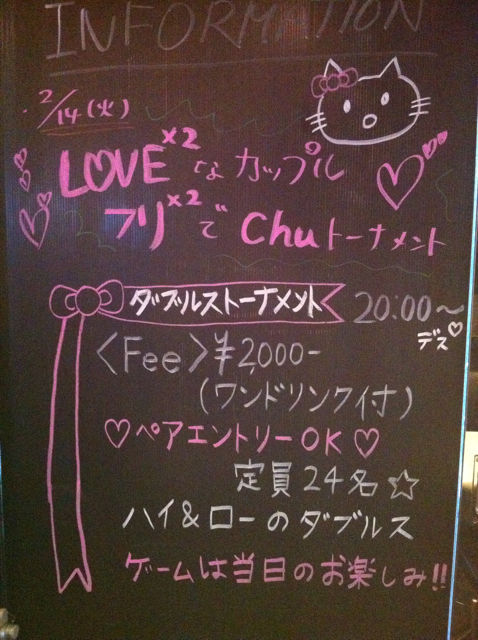 INFORMATION
2/14(火)
LOVE×2なカップル
フリ×2でChuトーナメント
ダブルストーナメント 20:00〜
デス♡
<Fee>¥2,000-
(ワンドリンク付)
♡ペアエントリーOK♡
定員24名☆
ハイ&ローのダブルス
ゲームは当日のお楽しみ!!